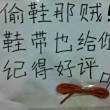 偷鞋那贼!
鞋带也给你
记得好评